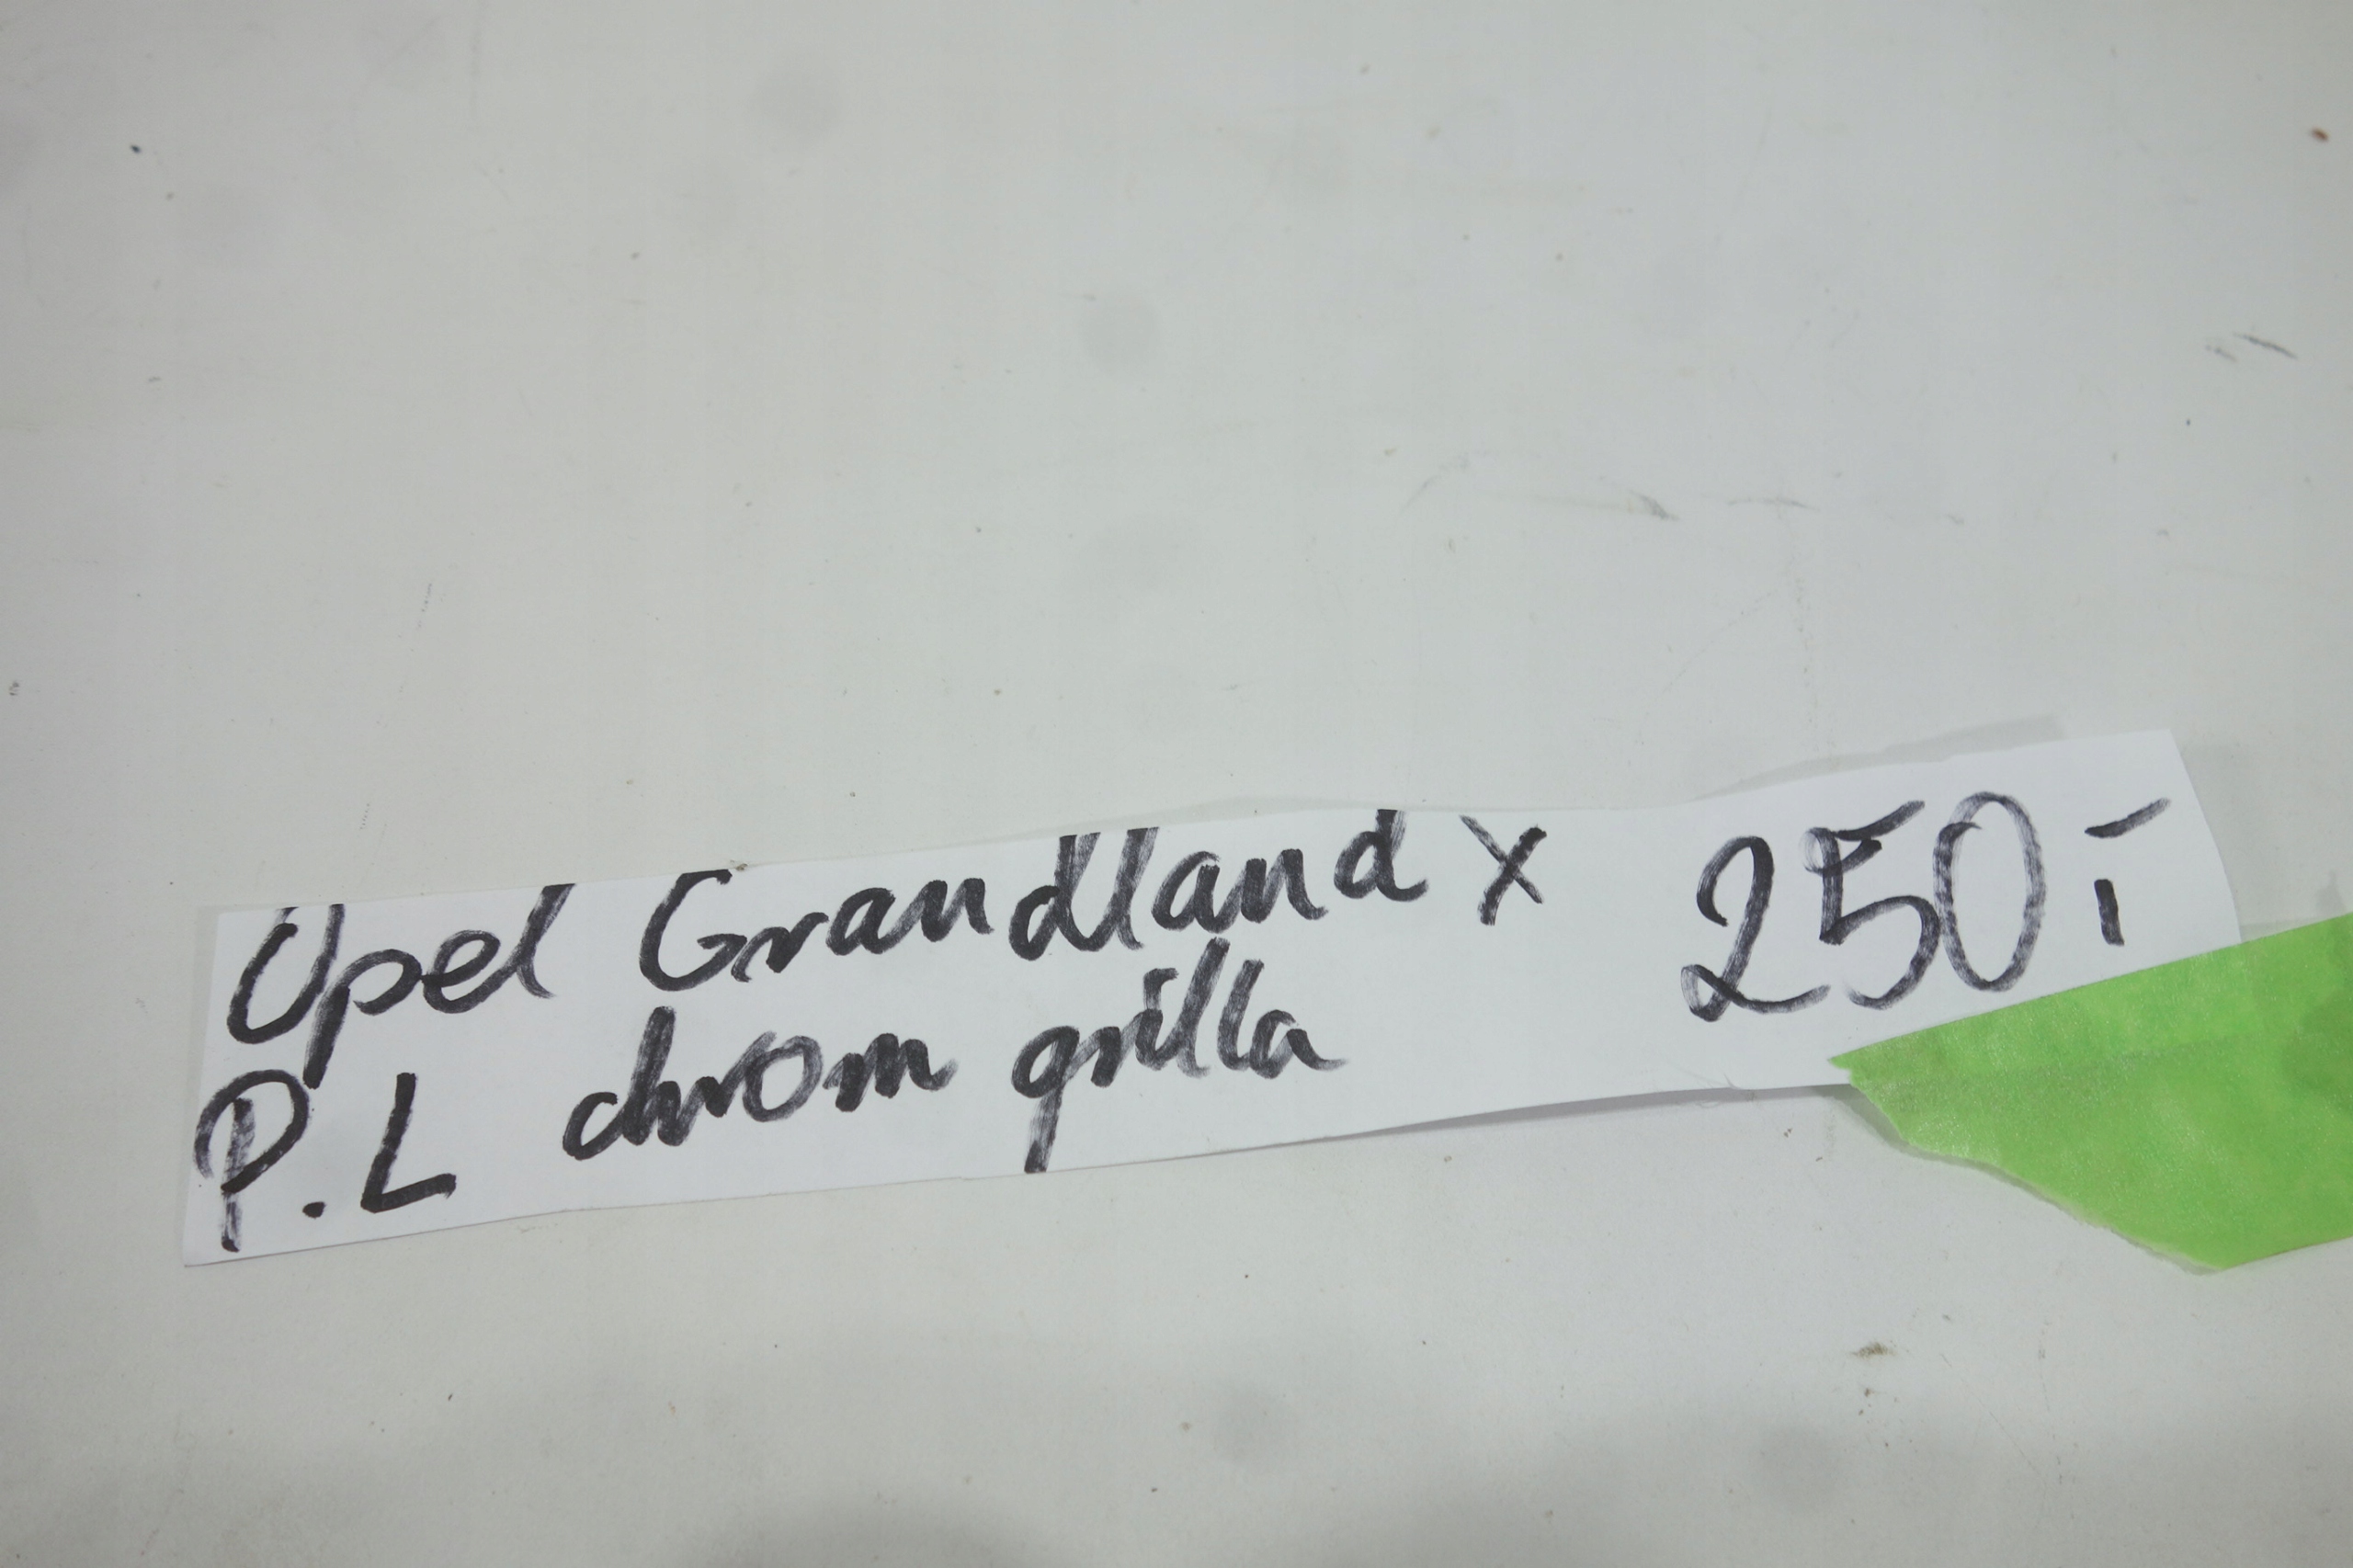 Opel Grandland X 250,-
P.L chrom grilla